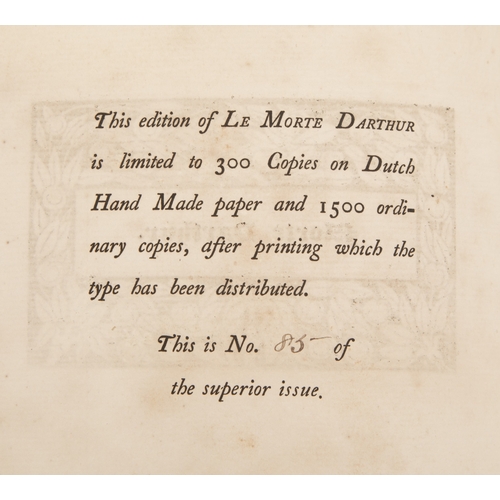 This edition of LE MORTE DARTHUR
is limited to 300 Copies on Dutch
Hand Made paper and 1500 ordi-
nary copies, after printing which the
type has been distributed.
This is No. 85 of
the superior issue.